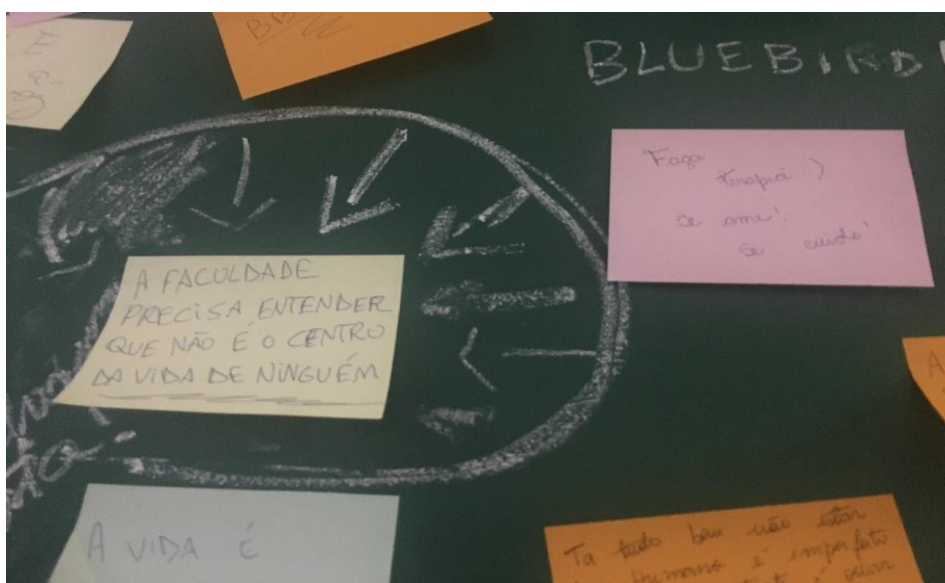 E
BLUEBIRD
Faça
terapia :)
se ame!
se cuide!
A FACULDADE
PRECISA ENTENDER
QUE NÃO É O CENTRO
DA VIDA DE NINGUÉM
A
A VIDA É
Ta tudo bem não estar
Humano é imperfeito